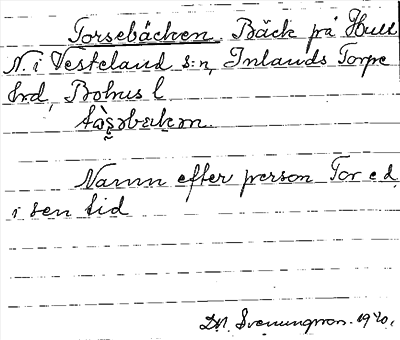 Torsebäcken. Bäck på Hult
N. i Vesteland s:n, Inlands Torpe
hrd, Bohus l.
Namn efter person Tor e d.
i sen tid
D.N. Svenungsson. 1920.